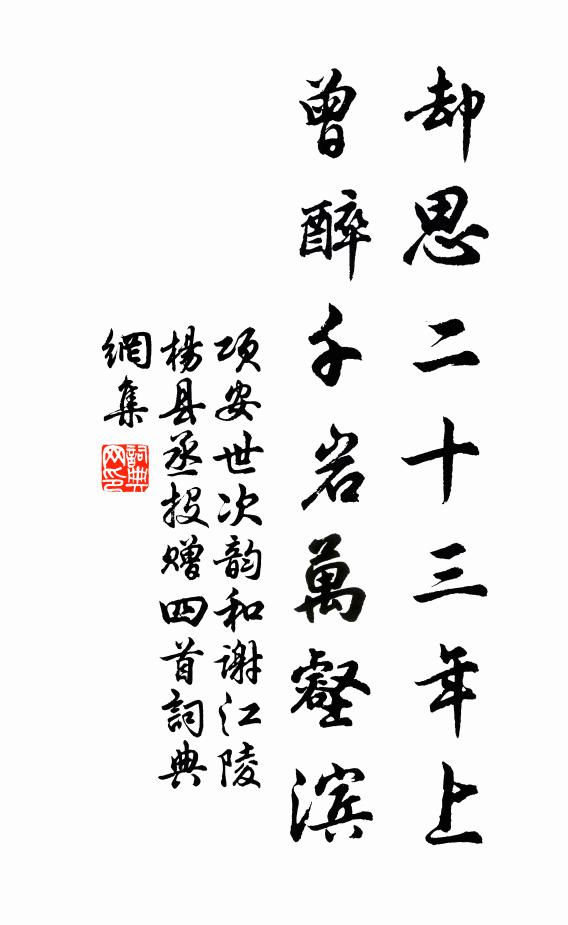 却思二十三年上
曾醉千岩萬壑滨
项安世次韵和谢江陵
楊县丞投赠四首詞典
網集
詞典
网印